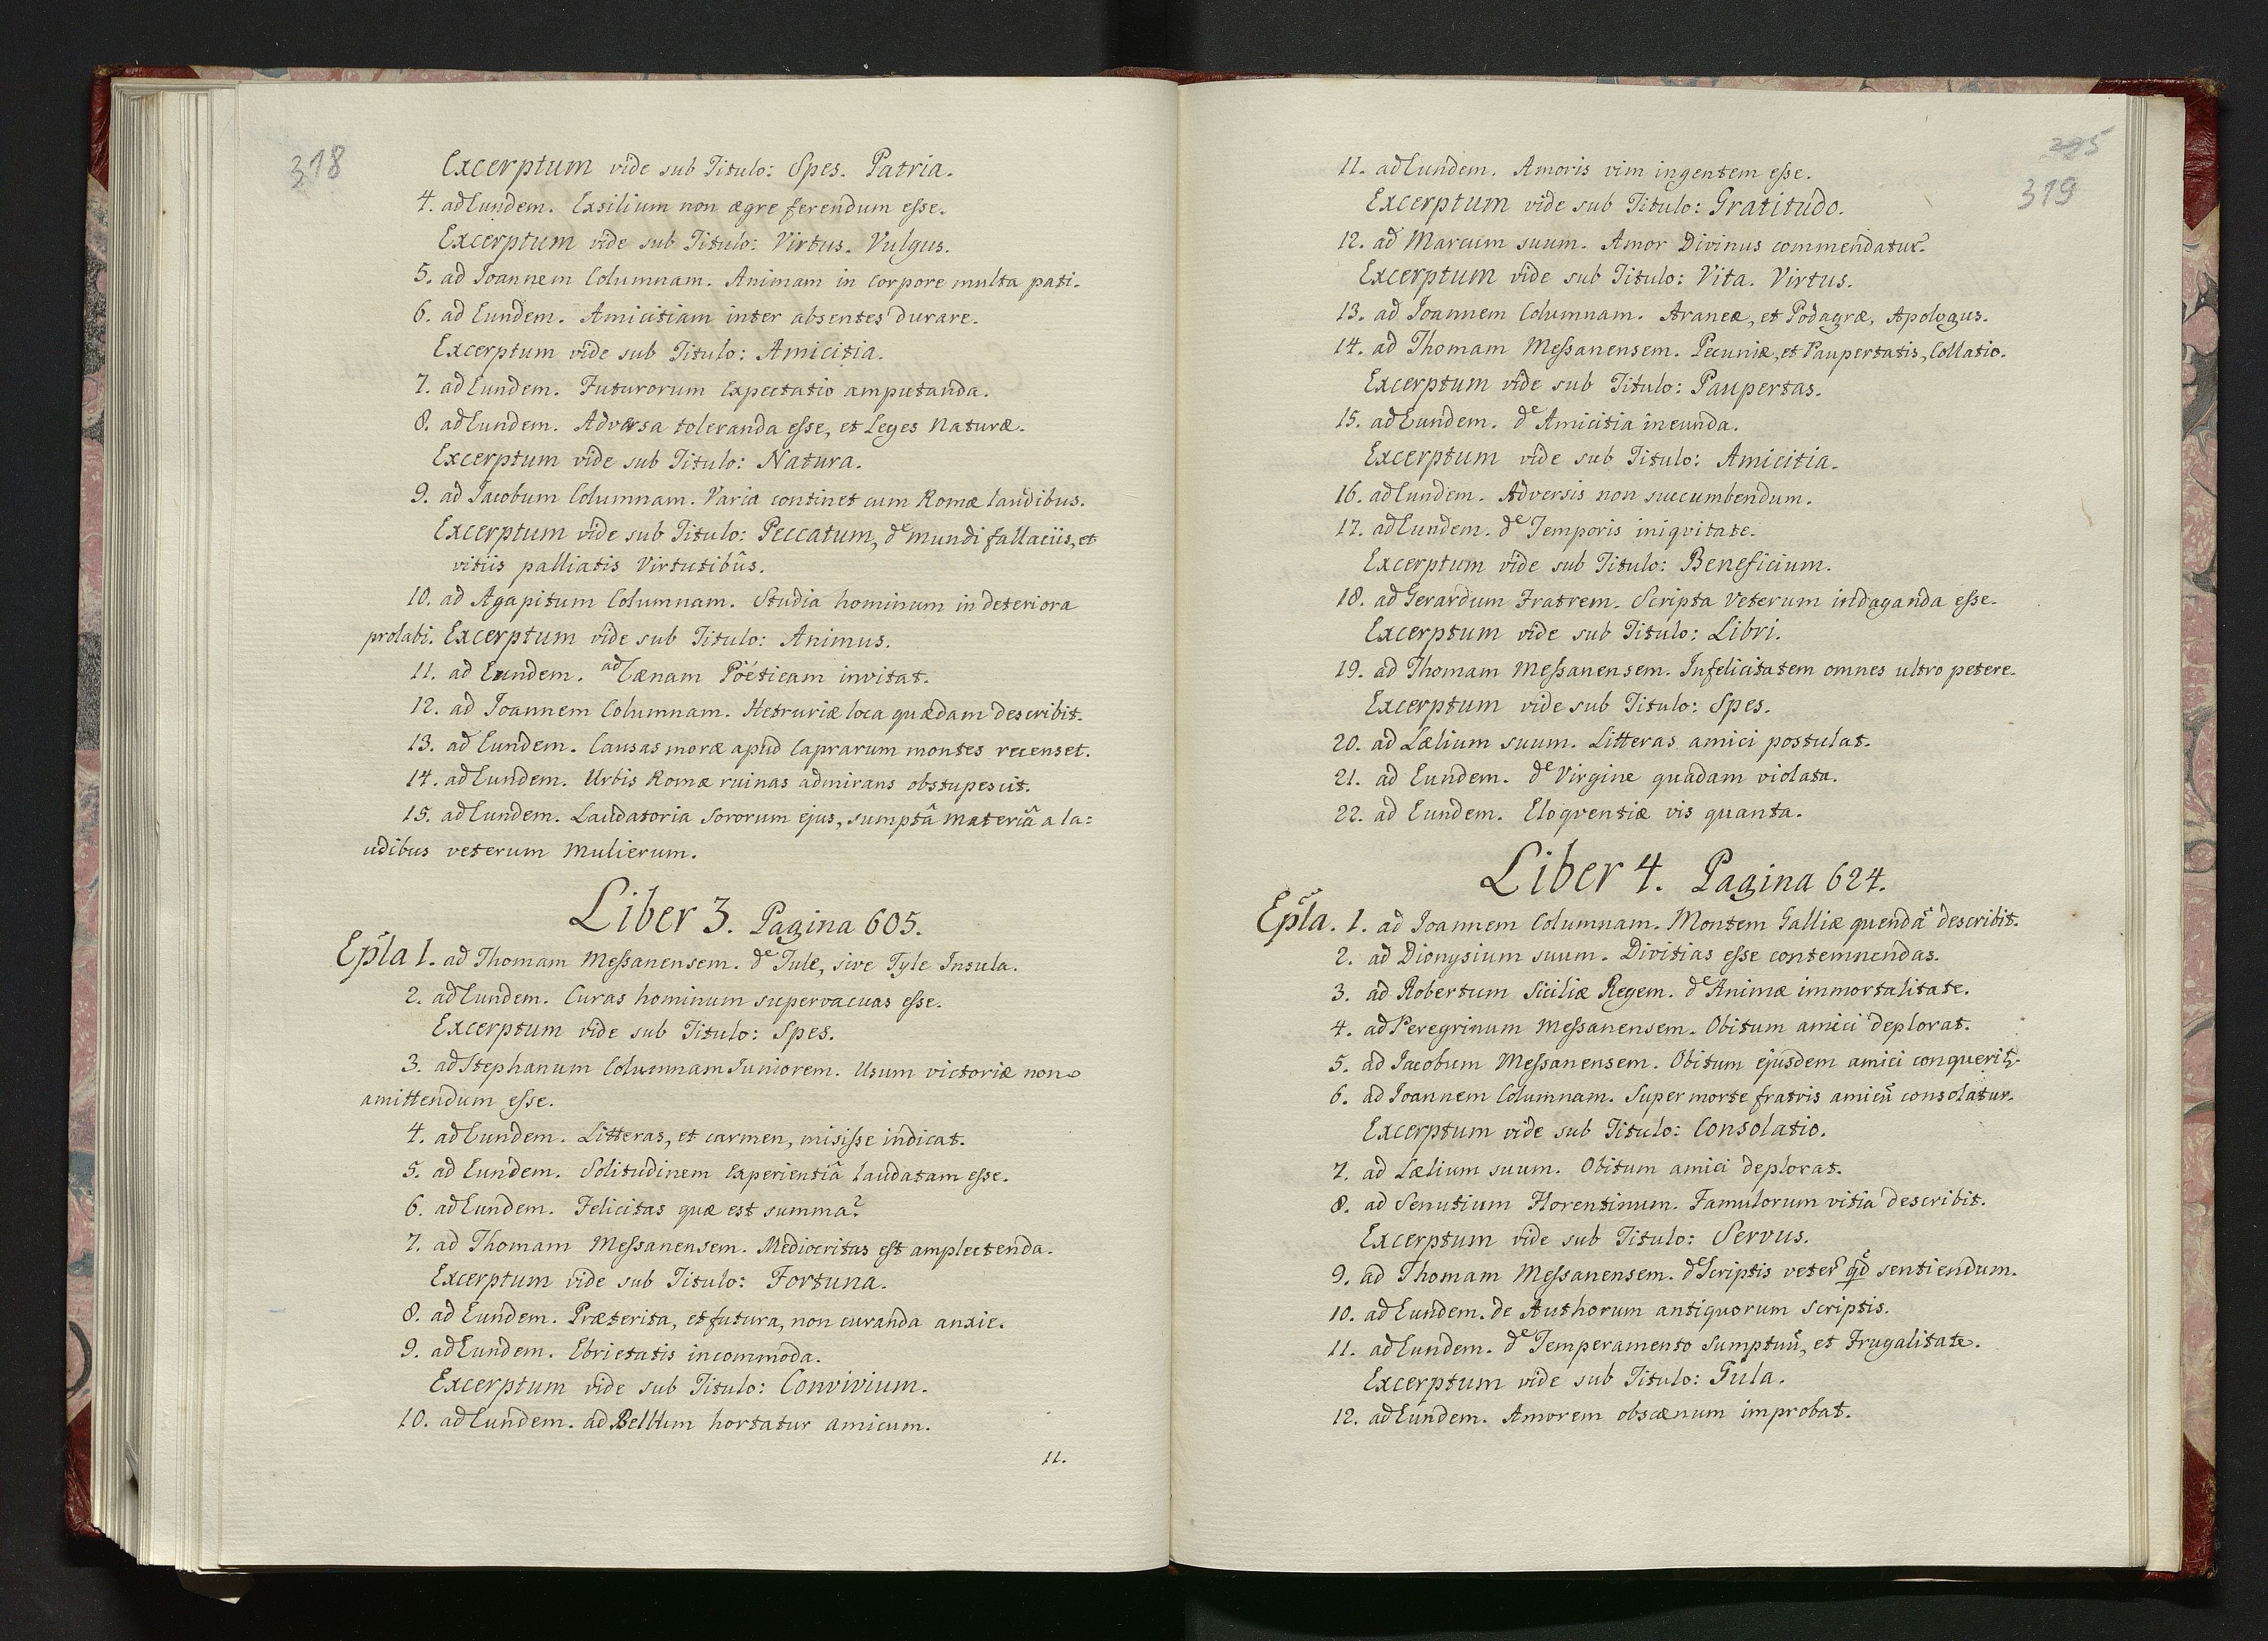 318
Excerptum vide sub Titulo: Spes. Patria.
4. ad Eundem. Exsilium non ægre ferendum esse.
Excerptum vide sub Titulo: Virtus. Vulgus.
5. ad Joannem Columnam. Animam in Corpore multa pati.
6. ad Eundem. Amicitiam inter absentes durare.
Excerptum vide sub Titulo: Amicitia.
7. ad Eundem. Futurorum Expectatio amputanda.
8. ad Eundem. Adversa toleranda esse, et Leges Naturæ.
Excerptum vide sub Titulo: Natura.
9. ad Jacobum Columnam. Varia continet cum Romæ laudibus.
Excerptum vide sub Titulo: Peccatum, de mundi fallaciis, et
vitiis palliatis Virtutibûs.
10. ad Agapitum Columnam. Studia hominum in deteriora
prolabi. Excerptum vide sub Titulo: Animus.
11. ad Eundem. ad Cænam Pöéticam invitat.
12. ad Joannem Columnam. Hetruriæ loca quædam describit.
13. ad Eundem. Causas moræ apud Caprarum montes recenset.
14. ad Eundem. Urbis Romæ ruinas admirans obstupescit.
15. ad Eundem. Laudatoria Sororum ejus, sumptâ materiâ a la=
udibus veterum Mulierum.
Liber 3. Pagina 605.
Epl̃a 1. ad Thomam Messanensem. de Tule, sive Tyle Insula.
2. ad Eundem. Curas hominum supervacuas esse.
Excerptum vide sub Titulo: Spes.
3. ad Stephanum Columnam Juniorem. Usum victoriæ non
amittendum esse.
4. ad Eundem. Litteras, et carmen, misisse indicat.
5. ad Eundem. Solitudinem Experientiâ laudatam esse.
6. ad Eundem. Felicitas quæ est summa?
7. ad Thomam Messanensem. Mediocritas est amplectenda.
Excerptum vide sub Titulo: Fortuna.
8. ad Eundem. Præterita, et futura, non curanda anxie.
9. ad Eundem. Ebrietatis incommoda.
Excerptum vide sub Titulo: Convivium.
10. ad Eundem. ad Bellum hortatur amicum.
11.
319
11. ad Eundem. Amoris vim ingentem esse.
Excerptum vide sub Titulo: Gratitudo.
12. ad Marcum suum. Amor Divinus commendatur.
Excerptum vide sub Titulo: Vita. Virtus.
13. ad Joannem Columnam. Araneæ, et Podagræ, Apologus.
14. ad Thomam Messanensem. Pecuniæ, et Paupertatis, Collatio.
Excerptum vide sub Titulo: Paupertas.
15. ad Eundem. de Amicitia ineunda.
Excerptum vide sub Titulo: Amicitia.
16. ad Eundem. Adversis non succumbendum.
17. ad Eundem. de Temporis iniqvitate.
Excerptum vide sub Titulo: Beneficium.
18. ad Gerardum Fratrem. Scripta Veterum indaganda esse.
Excerptum vide sub Titulo: Libri.
19. ad Thomam Messanensem. Infelicitatem omnes ultro petere.
Excerptum vide sub Titulo: Spes.
20. ad Lælium suum. Litteras amici postulat.
21. ad Eundem. de Virgine quadam violata.
22. ad Eundem. Eloqventiæ vis quanta.
Liber 4. Pagina 624.
Epl̃a. 1. ad Joannem Columnam. Montem Galliæ quendã describit.
2. ad Dionysium suum. Divitias esse contemnendas.
3. ad Robertum Siciliæ Regem. de Animæ immortalitate.
4. ad Peregrinum Messanensem. Obitum amici deplorat.
5. ad Jacobum Messanensem. Obitum ejusdem amici conquerit.
6. ad Joannem Columnam. Super morte fratris amicũ consolatur.
Excerptum vide sub Titulo: Consolatio.
7. ad Lælium suum. Obitum amici deplorat.
8. ad Senutium Florentinum. Famulorum vitia describit.
Excerptum vide sub Titulo: Servus.
9. ad Thomam Messanensem. de Scriptis veter̃ qd̃ sentiendum.
10. ad Eundem. de Authorum antiquorum scriptis.
11. ad Eundem. de Temperamento Sumptuũ, et Frugalitate.
Excerptum vide sub Titulo: Gula.
12. ad Eundem. Amorem obscænum improbat.